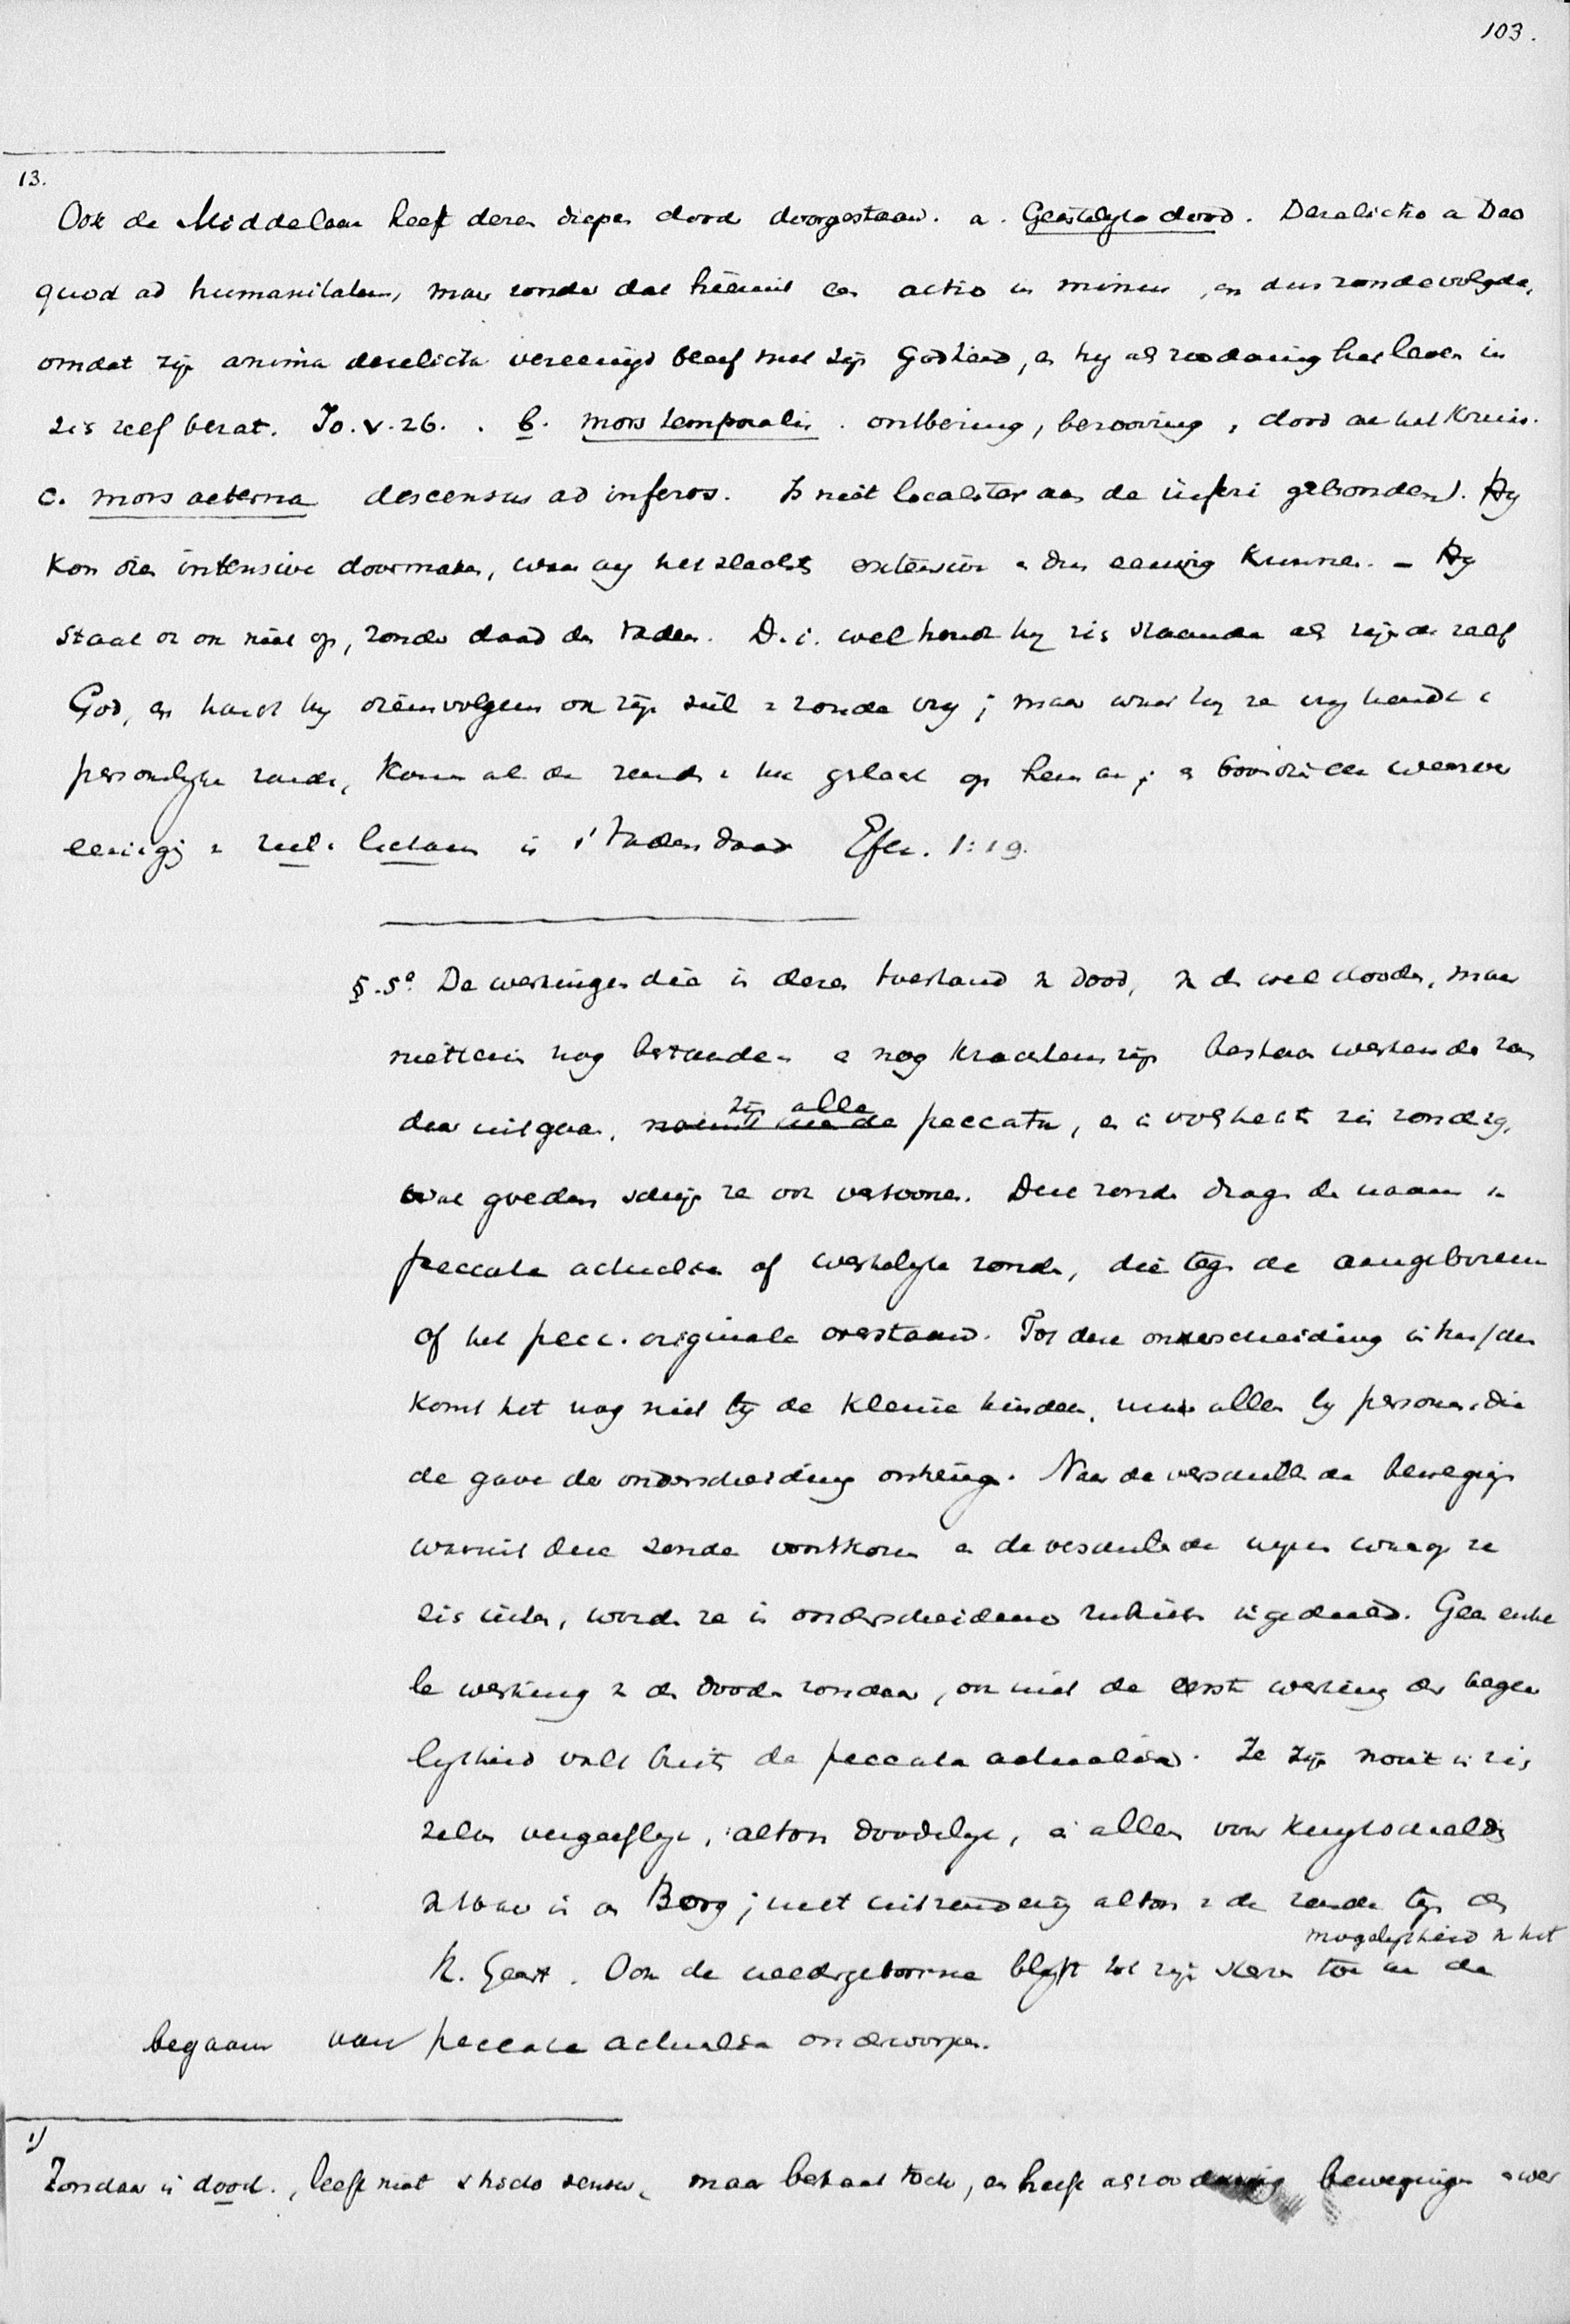 103.
13.
Ook de Middelaar heeft dezen diepen dood doorgestaan. a. Geestelyke dood. Derelictio a Deo
quod ad humanitatem, maar zonder dat hieruit een actio in minus, en dus zonde volgde,
omdat zijn anima derelicta vereenigd bleef met zijn Godheid, en hy als zoodanig het leven in
zich zelf bezat. Jo. v. 26. . b. mors temporalis. ontbering, berooving, dood aan het Kruis.
c. mors aeterna descensus ad inferos. Is niet localiter aan de inferi gebonden. Hy
kon dien intensive doormaken, waar wy het slechts extensive en dus eeuwig kunnen. - Hy
staat er ook niet op, zonder daad des Vaders. D.i. wel houdt hy zich staande als zijnde zelf
God, en houdt hy dienvolgens ook zijn ziel v zonde vry; maar waar hy ze vry houdt v
persoonlyke zonde, komt al de zonde v het geslacht op hem aan; en boven dien weder ver
eeniging v ziel en lichaam is 's Vaders daad Efez. 1:19.
§.5e. De werkingen die in dezen toestand v dood, v de wel dooden, maar
niettemin nog bestaanden en nog krachtens zijn bestaan werkende zon
daar uitgaan, zijn alle peccata, en in volstrekte zin zondig,
wat goeden schijn ze ook vertoonen. Deze zonden dragen de naam v
peccata actualia of werkelyke zonden, die tegen de aangeborene
of het pecc. originale overstaan. Tot deze onderscheiding in het /den
komt het nog niet by de kleine kinderen, maar alleen by personen, die
de gave der onderscheiding ontvingen. Naar de verschillende beweging
waaruit deze zonden voortkomen en de verschillende wijzen waarop ze
zich uiten, worden ze in onderscheidene rubrieken ingedeeld. Geen enke
le werking v de dooden zondaar, ook niet de eerste werking der begeer
lykheid valt buiten de peccata actualia. Ze zijn nooit in zich
zelven vergeeflyk, altoos doodelyk, en alle voor kwytschelding
vatbaar in den Borg; met uitzondering altoos v de zonde tegen den
H. Geest. Ook de wedergeborene blyft tot zijn sterven toe aan de mogelykheid v het
begaan van peccata actualia onderworpen.
1)
Zondaar is dood., leeft niet stricto sensu, maar bestaat toch, en heeft als zoodanig bewegingen en wer